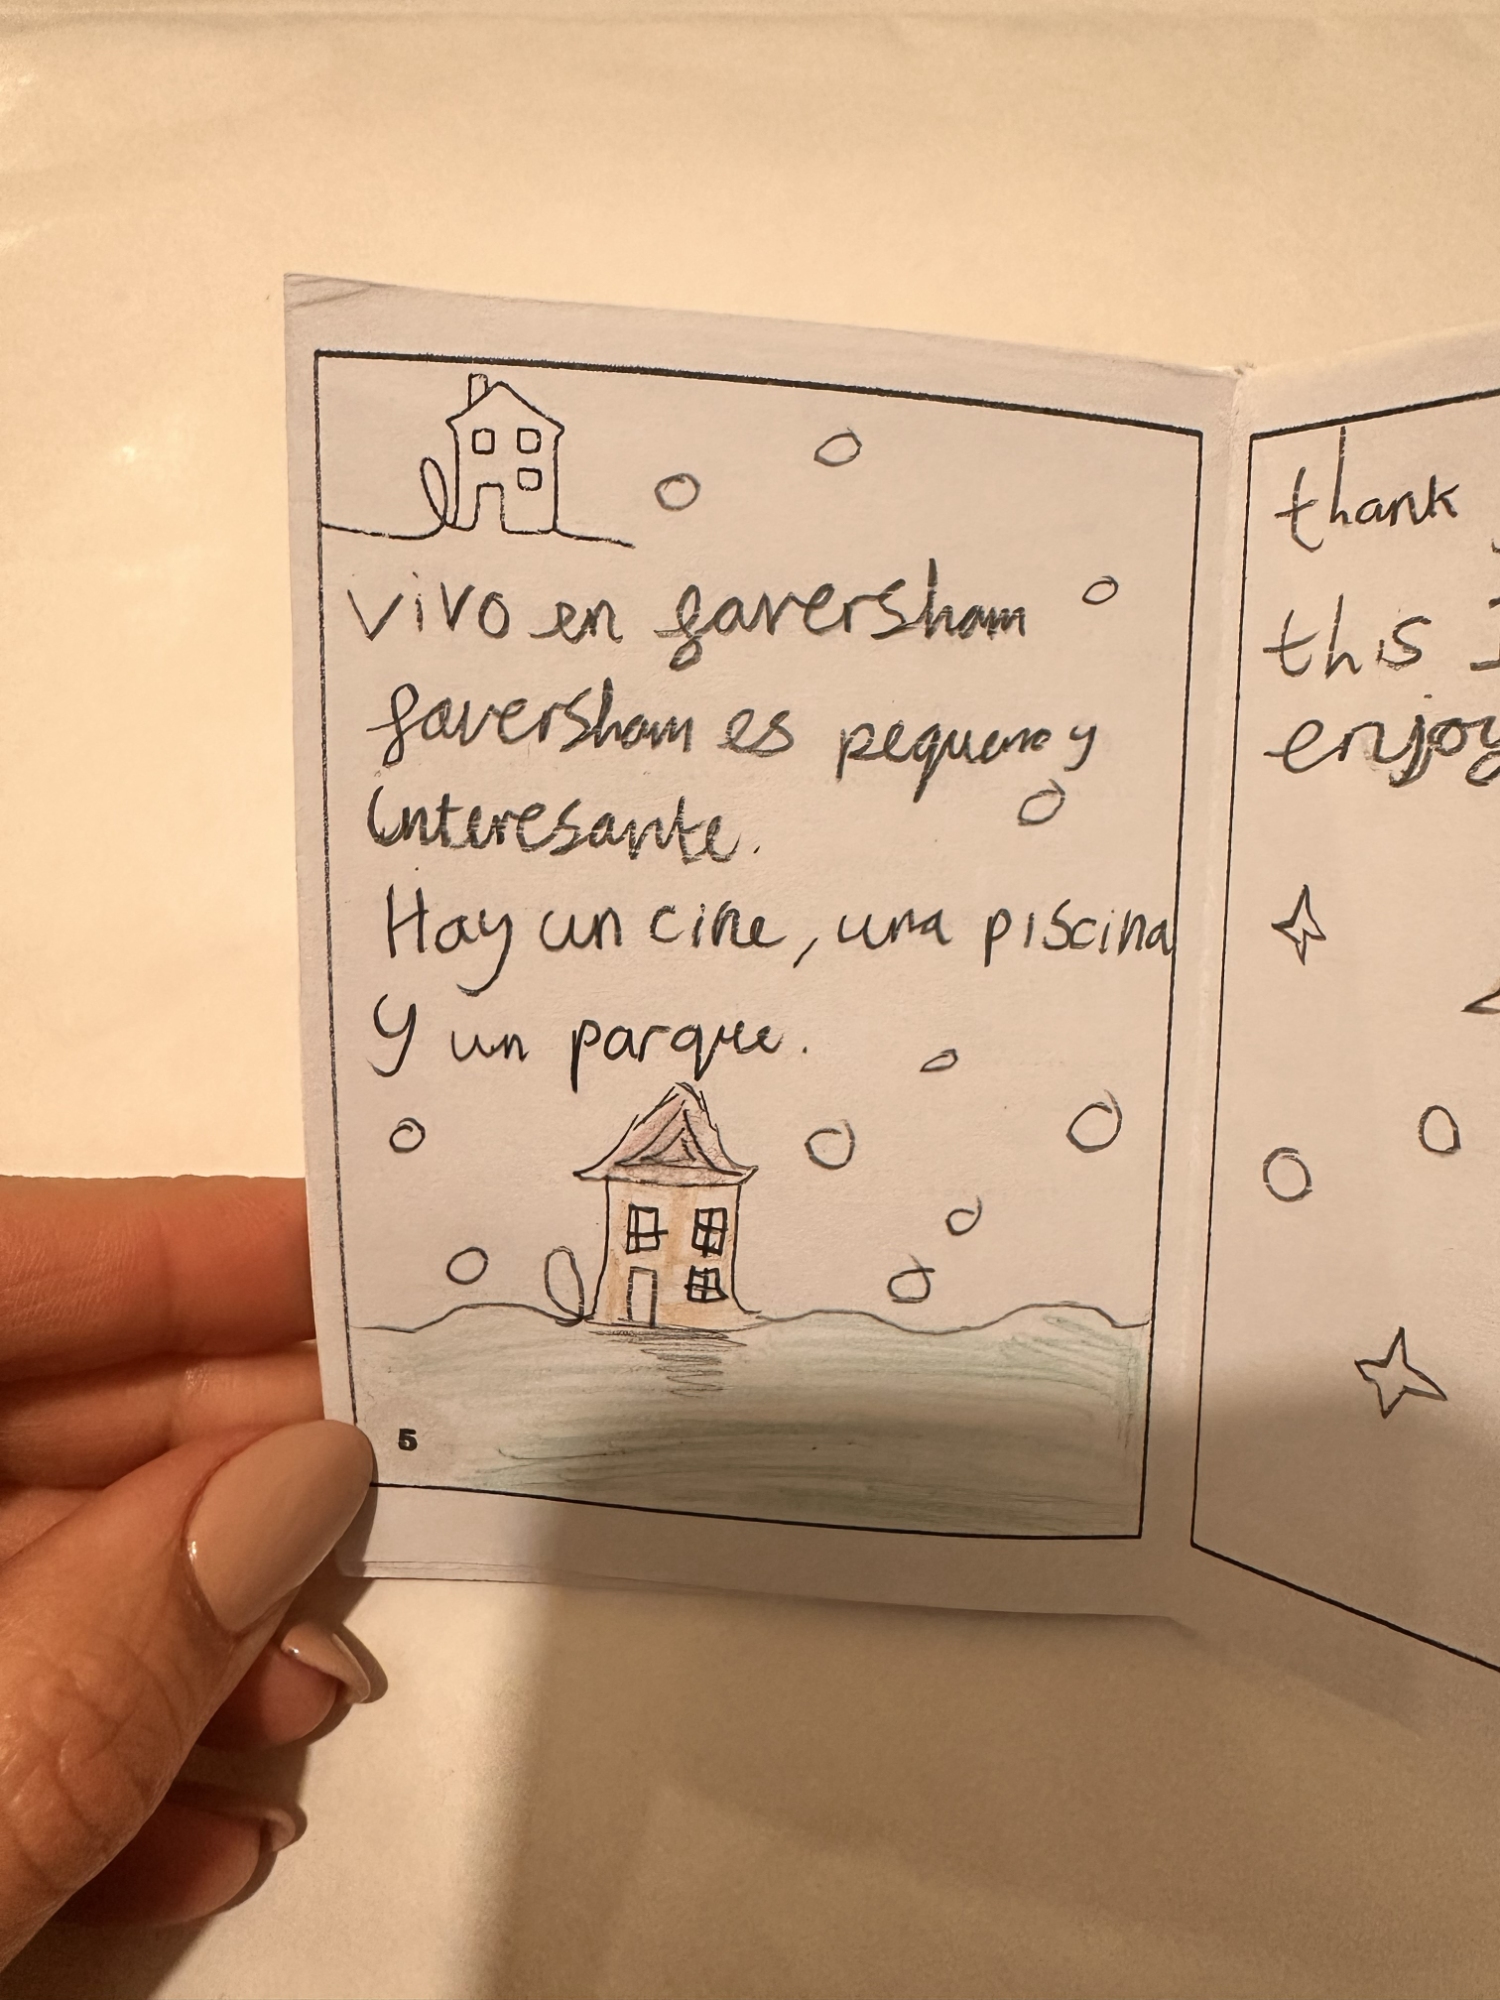 vivo en faversham
faversham es pequeno y
interesante.
Hay un cine, una piscina
y un parque.
5
thank
this I
enjoy